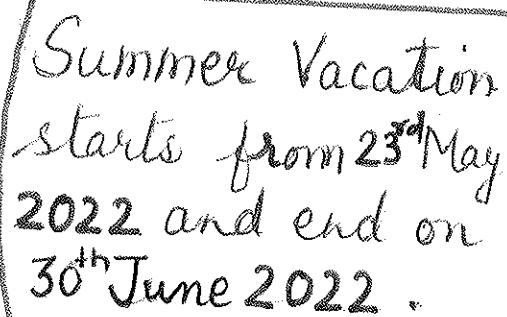 Summer Vacation
starts from 23rd May
2022 and end on
30th June 2022.